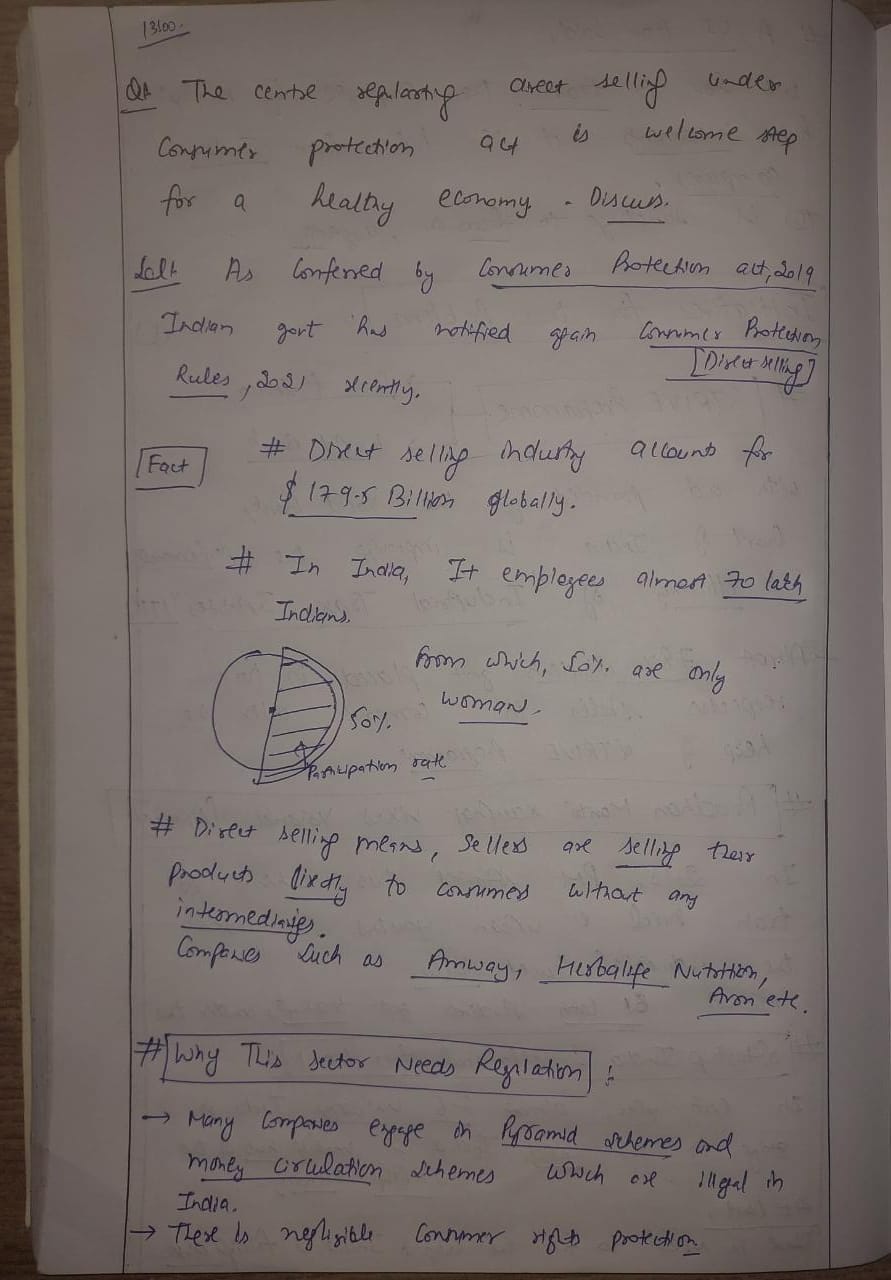 13:00.
Q1 The centre regularting direct selling under
Consumer protection act is welcome step
for a healthy economy. Discuss.
Sol: As Conferred by Consumer Protection act, 2019
Indian govt has notified again Consumer Protection
[Direct selling]
Rules, 2021 recently.
Fact
# Direct selling industry accounts for
$ 179.5 Billion globally.
# In India, It employees almost 70 lakh
Indians.
from which, 50% are only
woman.
50%.
Participation rate
# Direct selling means, Sellers are selling their
products directly to consumers without any
intermediaries.
Companies such as Amway, Herbalife Nutrition,
Avon etc.
# Why This sector Needs Regulation :
→ Many Companies engage in Pyramid schemes and
money circulation schemes which are illegal in
India.
→ There is negligible Consumer rights protection